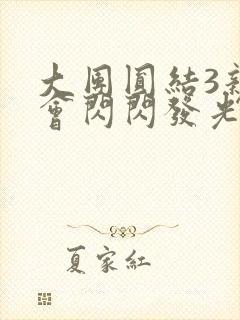 大團圓結3
會閃閃發光
夏家紅